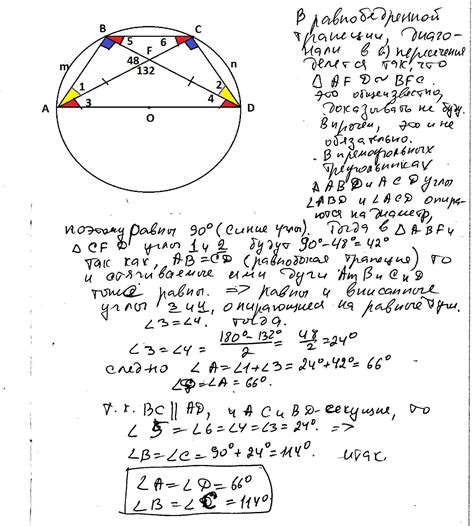 B C
5 6
F
m n
48
132
1 2
3 4
A D
O
В равнобедренной
трапеции, диаго-
нали в в) пересечение
делятся так, что
△ AFD ∾ BFC.
это общеизвестно,
доказывать не буду.
Впрочем, это и не
обязательно.
В прямоугольных
треугольниках
△ ABD и ACD углы
∠ABD и ∠ACD опира-
ются на диаметр,
поэтому равны 90° (синие углы). Тогда в △ ABF и
△ CFD углы 1 и 2 будут 90°-48°=42°
так как, AB=CD (равнобокая трапеция) то
и стягиваемые ими дуги AmB и CnD
тоже равны. => равны и вписанные
углы 3 и 4, опирающиеся на равные дуги.
∠3=∠4. тогда.
∠3=∠4= (180°-132°)/2 = 48/2 = 24°
следно ∠A=∠1+∠3=24°+42°=66°
∠D=∠A=66°.
т.к. BC || AD, и AC и BD-секущие, то
∠5=∠6=∠4=∠3=24°. =>
∠B=∠C=90°+24°=114°. итак
∠A=∠D=66°
∠B=∠C=114°